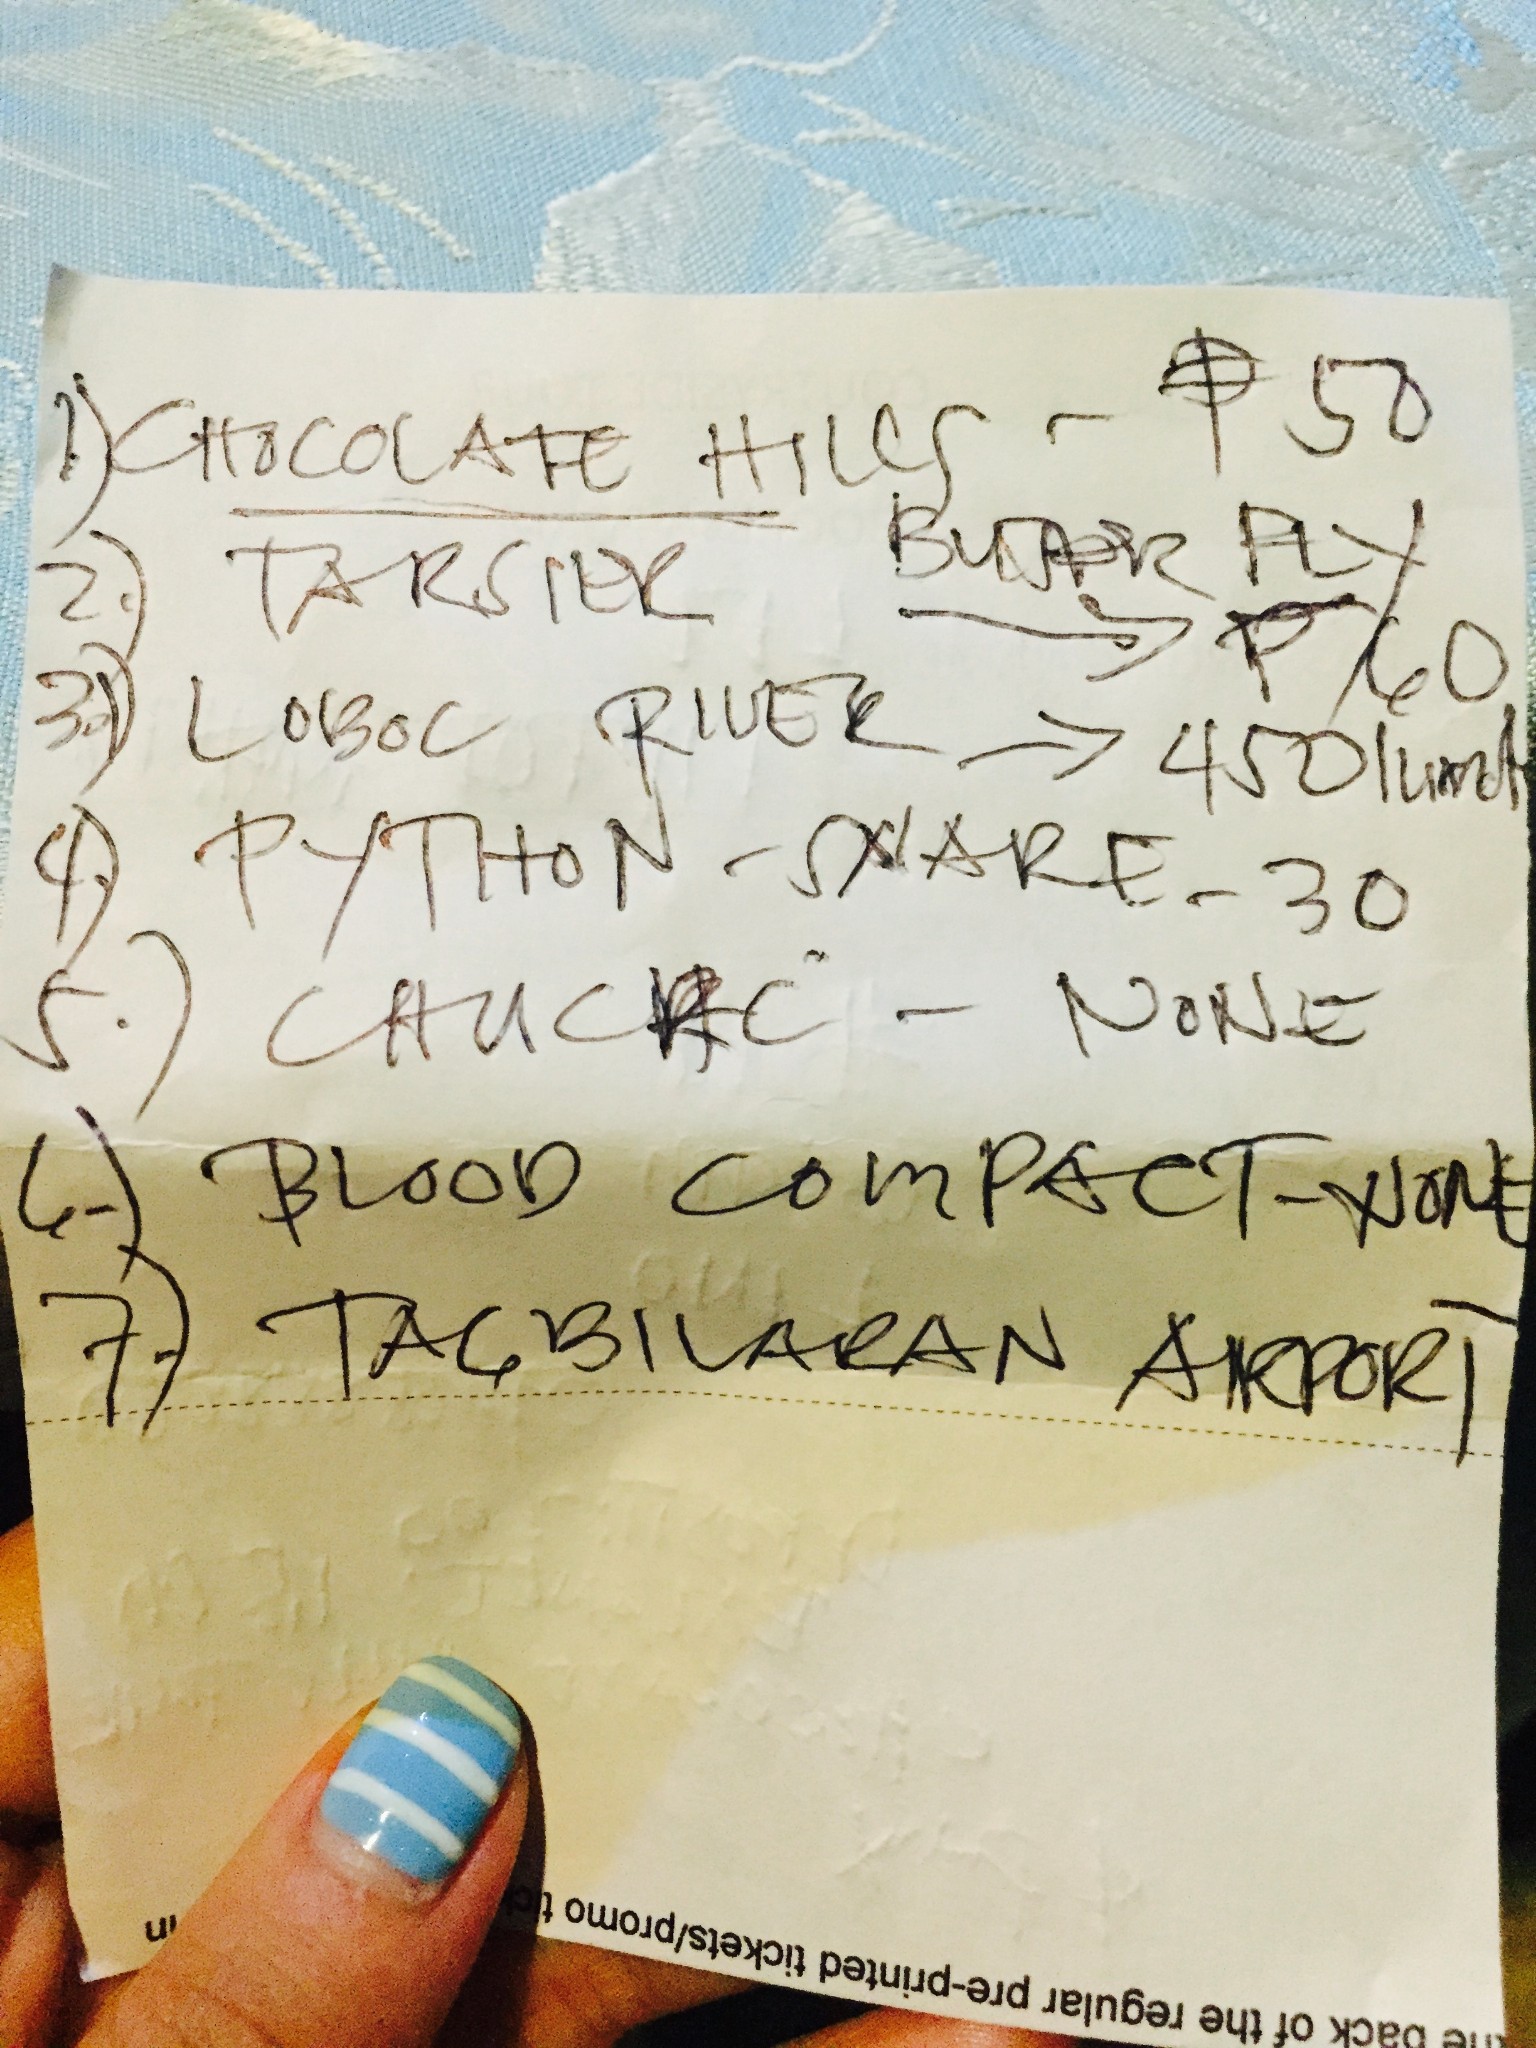 1.) CHOCOLATE HILLS - ₱ 50
2.) TARSIER BUTTER FLY → P/60
3.) LOBOC RIVER → 450 lunch
4.) PYTHON - SNAKE - 30
5.) - NONE
6.) BLOOD COMPACT - NONE
7.) TAGBILARAN AIRPORT
back of the regular pre-printed tickets/promo